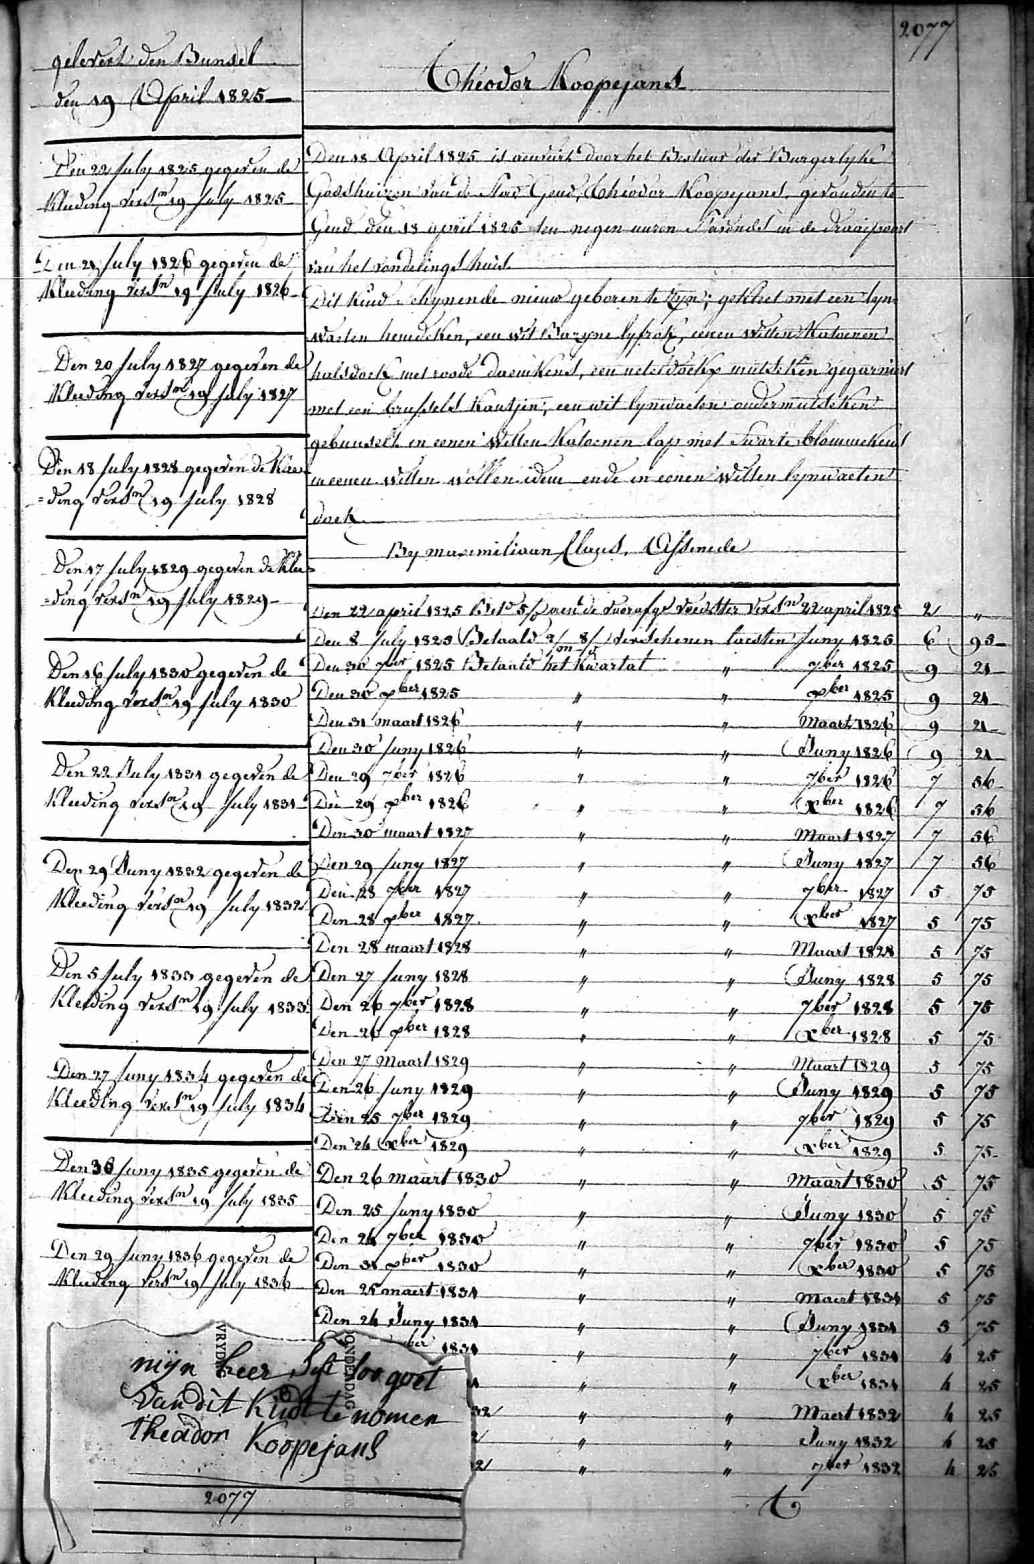 2077
gelevert den Bunsel
den 19 April 1825
Den 22 July 1825 gegeven de
Kleeding versn 19 July 1825
Den 21 July 1826 gegeven de
Kleeding versn 19 July 1826
Den 20 July 1827 gegeven de
Kleeding versn 19 July 1827
Den 18 July 1828 gegeven de Klee
=ding versn 19 July 1828
Den 17 July 1829 gegeven de Klee
=ding versn 19 July 1829
Den 16 July 1830 gegeven de
Kleeding versn 19 July 1830
Den 22 July 1831 gegeven de
Kleeding versn 19 July 1831
Den 29 Juny 1832 gegeven de
Kleeding versn 19 July 1832
Den 5 July 1833 gegeven de
Kleeding versn 19 July 1833
Den 27 Juny 1834 gegeven de
Kleeding versn 19 July 1834
Den 30 Juny 1835 gegeven de
Kleeding versn 19 July 1835
Den 29 Juny 1836 gegeven de
Kleeding versn 19 July 1836
Théodor Koopejans
Den 18 April 1825 is aenveirt door het Bestuur der Burgerlyke
Godshuizen van de Stad Gend, Théodor Koopejans, gevonden te
Gend den 18 april 1825 ten negen uuren S'avonds in de draaipoort
van het vondelings huis
Dit kind schynende nieuw geboren te zyn; gekleet met een lyn-
waeten hemdeken, een wit Bazyne lyfrok, eenen witten Katoenen
halsdoek met roode  een neteldoekx mutseken gegarniert
met een brussels Kantjen, een wit lynwaeten ondermutseken
gebunselt in eenen witten Katoenen lap met swarte blommekens
in eenen witten wollen idem ende in eenen witten lynwaeten
doek
By maximiliaan Claus, Assenede
Den 22 april 1825 aen de voedster versn 22 april 1825 2 "
Den 8 July 1825 Betaald verschenen laesten Juny 1825 6 95
Den 30 7ber 1825 Betaald het Kwartal " 7ber 1825 9 21
Den 30 xber 1825 " " xber 1825 9 21
Den 31 maart 1826 " " Maart 1826 9 21
Den 30 Juny 1826 " " Juny 1826 9 21
Den 29 7ber 1826 " " 7ber 1826 7 56
Den 29 xber 1826 " " xber 1826 7 56
Den 30 maart 1827 " " Maart 1827 7 56
Den 29 Juny 1827 " " Juny 1827 7 56
Den 28 7ber 1827 " " 7ber 1827 5 75
Den 28 xber 1827 " " xber 1827 5 75
Den 28 maart 1828 " " Maart 1828 5 75
Den 27 Juny 1828 " " Juny 1828 5 75
Den 26 7ber 1828 " " 7ber 1828 5 75
Den 26 xber 1828 " " xber 1828 5 75
Den 27 Maart 1829 " " Maart 1829 5 75
Den 26 Juny 1829 " " Juny 1829 5 75
Den 25 7ber 1829 " " 7ber 1829 5 75
Den 24 xber 1829 " " xber 1829 5 75
Den 26 maart 1830 " " Maart 1830 5 75
Den 25 Juny 1830 " " Juny 1830 5 75
Den 24 7ber 1830 " " 7ber 1830 5 75
Den 31 xber 1830 " " xber 1830 5 75
Den 25 maert 1831 " " Maert 1831 5 75
Den 24 Juny 1831 " " Juny 1831 5 75
ber 1831 " " 7ber 1831 4 25
1 " " xber 1831 4 25
32 " " Maert 1832 4 25
2 " " Juny 1832 4 25
2 " " 7ber 1832 4 25
VRYDAG
DONDERDAG
mijn heer soo goet
van dit Kindt te nomen
theador Koopejans
2077